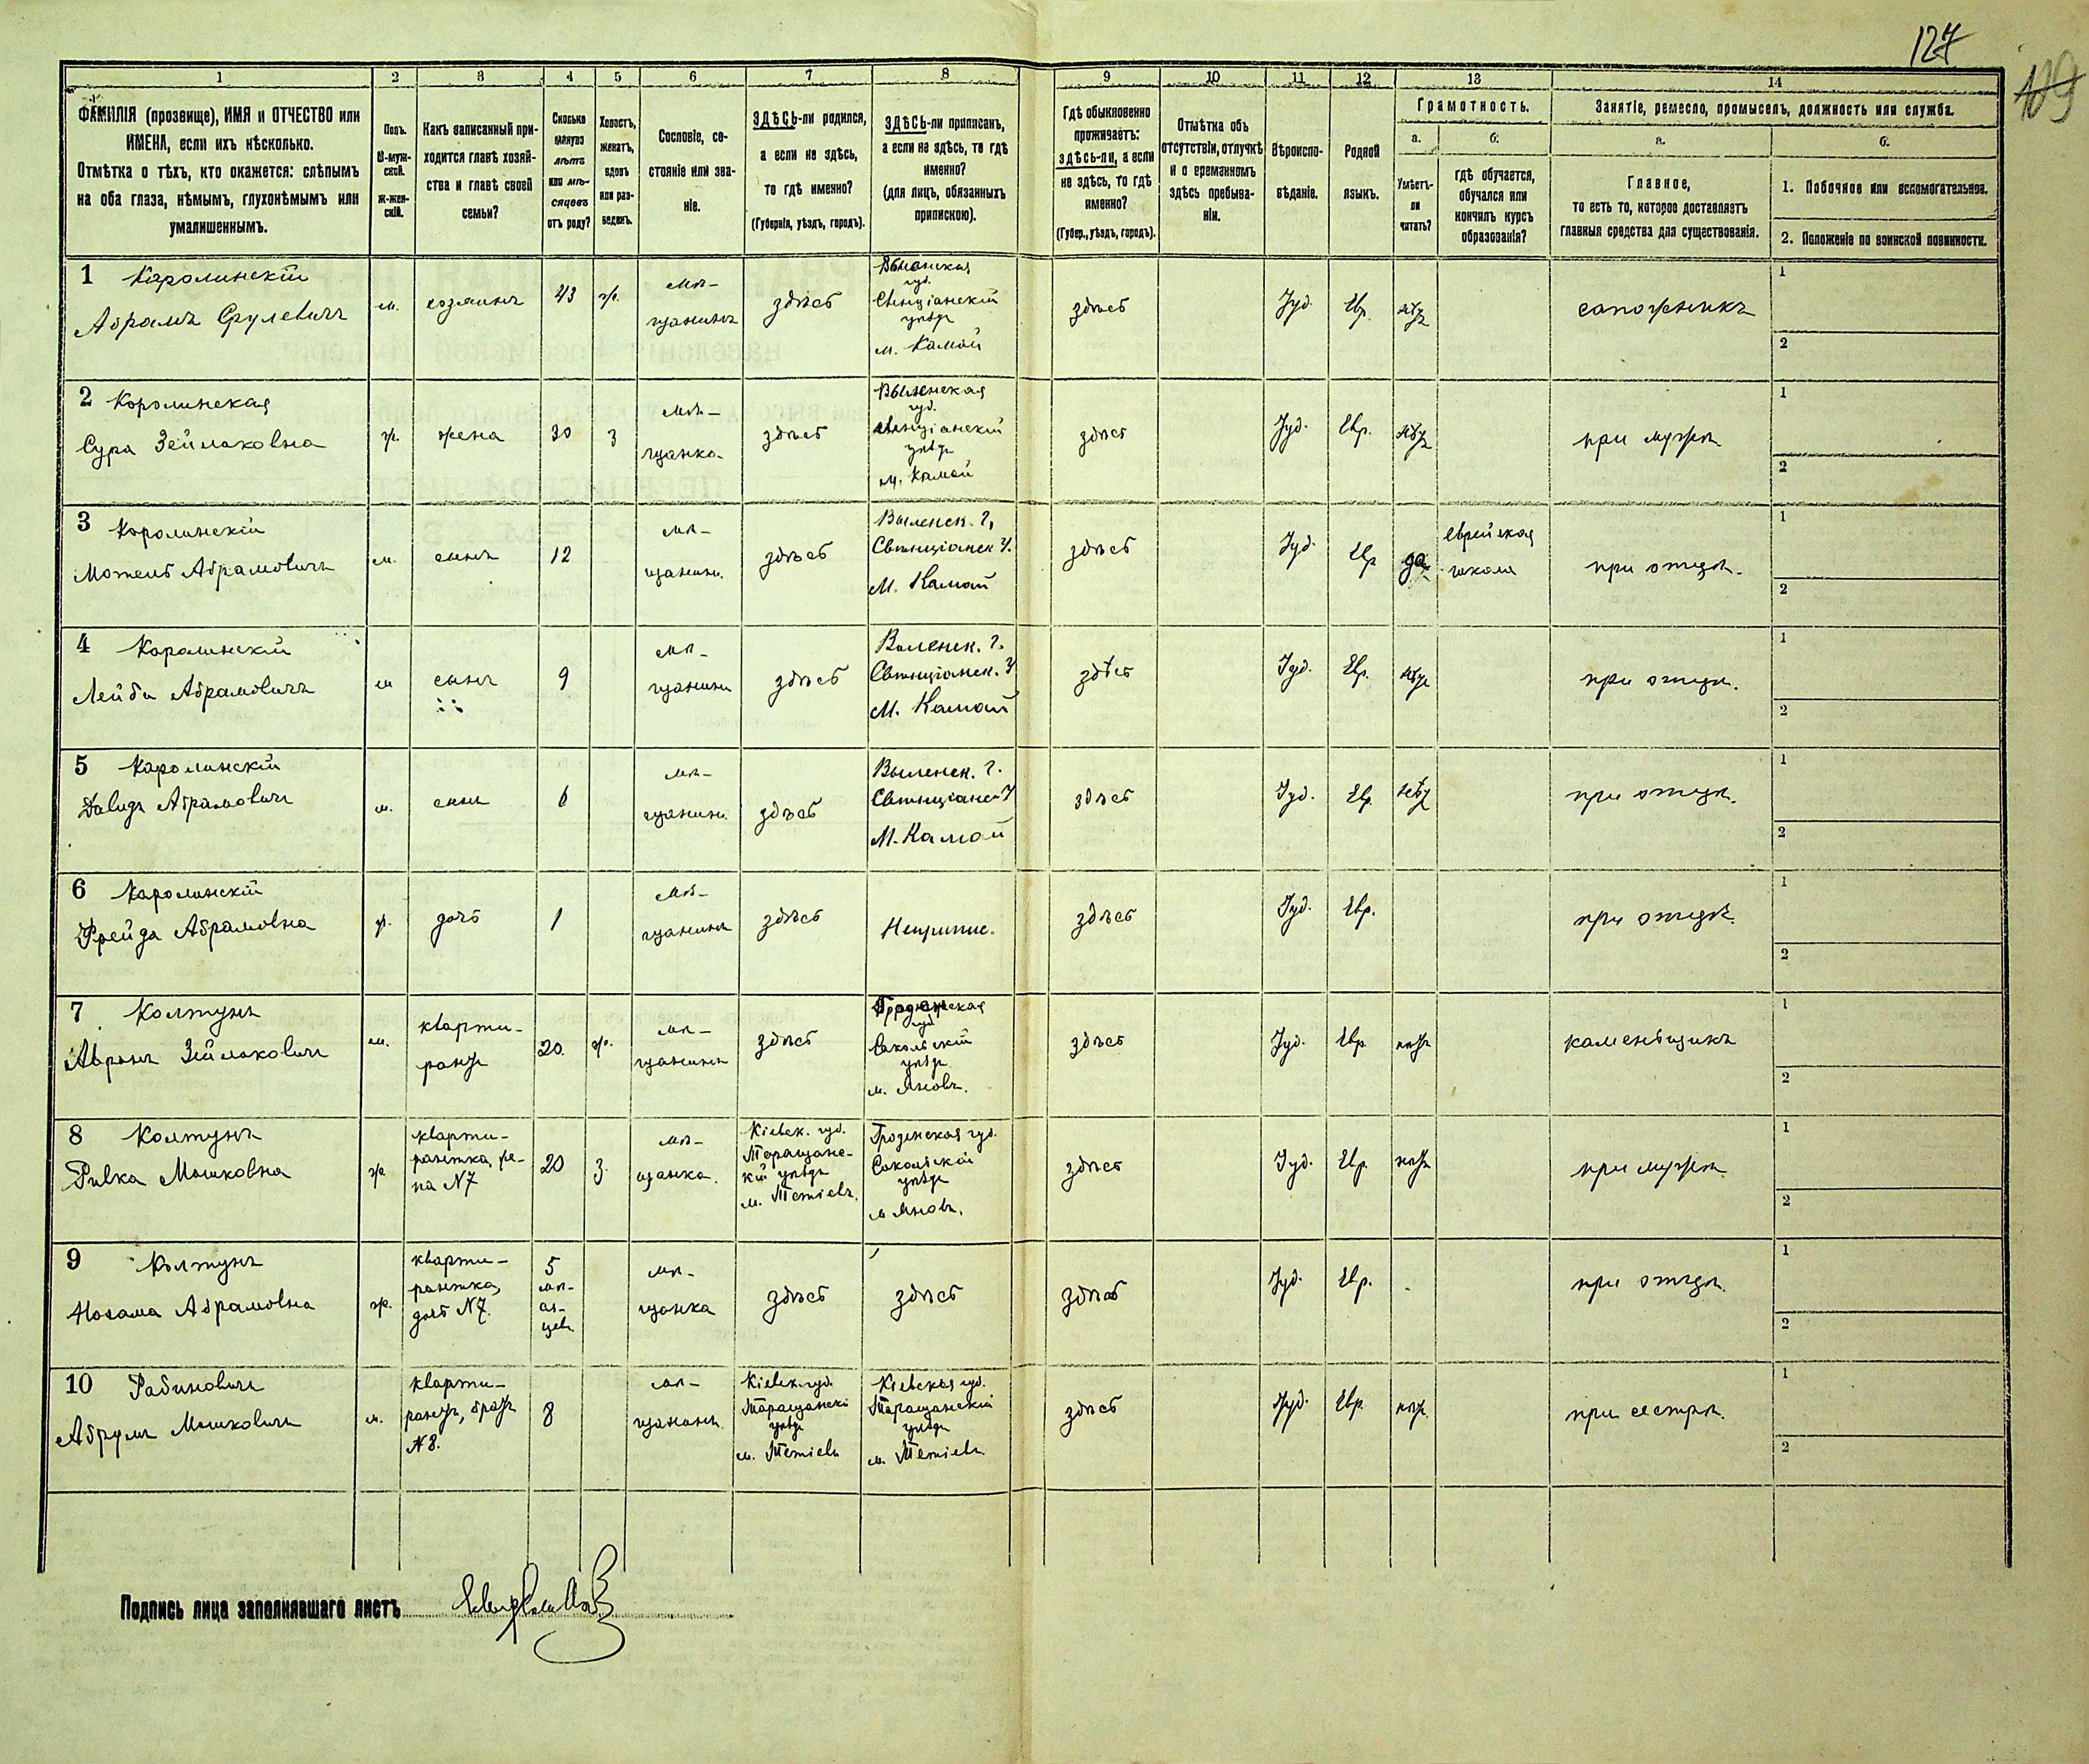 127
109
1
2
3
4
5
6
7
8
9
10
11
12
13
14
ФАМИЛІЯ (прозвище), ИМЯ и ОТЧЕСТВО или
ИМЕНА, если ихъ нѣсколько.
Отмѣтка о тѣхъ, кто окажется: слѣпымъ
на оба глаза, нѣмымъ, глухонѣмымъ или
умалишеннымъ.
Полъ.
М-муж-
ской.
ж-жен-
скій.
Какъ записанный при-
ходится главѣ хозяй-
ства и главѣ своей
семьи?
Сколько
минуло
лѣтъ
или мѣ-
сяцевъ
отъ роду?
Холостъ,
женатъ,
вдовъ
или раз-
веденъ.
Сословіе, со-
стояніе или зва-
ніе.
ЗДѢСЬ-ли родился,
а если не здѣсь,
то гдѣ именно?
(Губернія, уѣздъ, городъ).
ЗДѢСЬ-ли приписанъ,
а если не здѣсь, то гдѣ
именно?
(для лицъ, обязанныхъ
припискою).
Гдѣ обыкновенно
проживаетъ:
здѣсь-ли, а если
не здѣсь, то гдѣ
именно?
(Губер., уѣздъ, городъ).
Отмѣтка объ
отсутствіи, отлучкѣ
и о временномъ
здѣсь пребыва-
ніи.
Вѣроиспо-
вѣданіе.
Родной
языкъ.
Грамотность.
а.
б.
Умѣетъ-
ли
читать?
гдѣ обучается,
обучался или
кончилъ курсъ
образованія?
Занятіе, ремесло, промыселъ, должность или служба.
а.
б.
Главное,
то есть то, которое доставляетъ
главныя средства для существованія.
1. Побочное или вспомогательное.
2. Положеніе по воинской повинности.
1 Каролинскій
Абрамъ Срулевичъ
м.
хозяинъ
43
ж.
мѣ-
щанинъ
здѣсь
Виленская
губ.
Свенціанскій
уѣздъ
м. Камай
здѣсь
Іуд.
Евр.
нѣтъ
сапожникъ
1
2
2 Каролинская
Сура Зеймаховна
ж.
жена
30
з
мѣ-
щанка
здѣсь
Виленская
губ.
Свенціанскій
уѣздъ
м. Камай
здѣсь
Іуд.
Евр.
нѣтъ
при мужѣ
1
2
3 Каролинскій
Мотель Абрамовичъ
м.
сынъ
12
мѣ-
щанин.
здѣсь
Виленск. г.
Свенціанск у.
м. Камай
здѣсь
Іуд.
Евр
да
еврейская
школа
при отцѣ.
1
2
4 Каролинскій
Лейба Абрамовичъ
м
сынъ
9
мѣ-
щанинъ
здѣсь
Виленск. г.
Свенціанск. у
м. Камай
здѣсь
Іуд.
Евр.
нѣтъ
при отцѣ.
1
2
5 Каролинскій
Давидъ Абрамовичъ
м.
сынъ
6
мѣ-
щанин.
здѣсь
Виленск. г.
Свенціанск у
м. Камай
здѣсь
Іуд.
Евр.
нѣтъ
при отцѣ.
1
2
6 Каролинскій
Фрейда Абрамовна
ж.
дочь
1
мѣ-
щанинъ
здѣсь
Неприпис.
здѣсь
Іуд.
Евр.
при отцѣ.
1
2
7 Колтунъ
Абрамъ Зеймаховичъ
м.
кварти-
рантъ
20.
ж.
мѣ-
щанинъ
здѣсь
Гродненская
губ
Сокольскій
уѣздъ
м. Яновъ.
здѣсь
Іуд.
Евр.
нѣтъ
каменьщикъ
1
2
8 Колтунъ
Ривка Мошковна
ж
кварти-
рантка, же-
на №7
20
з.
мѣ-
щанка.
Кіевск. губ.
Таращанс-
кій уѣздъ
м. Тетіевъ.
Гродненская губ.
Сокольскій
уѣздъ
м Яновъ.
здѣсь
Іуд.
Евр.
нѣтъ
при мужѣ
1
2
9 Колтунъ
Нохама Абрамовна
ж.
кварти-
рантка,
дочь №7.
5
мѣ-
ся-
цевъ
мѣ-
щанка
здѣсь
здѣсь
здѣсь
Іуд.
Евр.
при отцѣ.
1
2
10 Рабиновичъ
Абрумъ Мошковичъ
м.
кварти-
рантъ, братъ
№8.
8
мѣ-
щанинъ
Кіевск. губ.
Таращанскі
уѣздъ
м. Тетіевъ
Кіевская губ.
Таращанскій
уѣздъ
м. Тетіевъ
здѣсь
Іуд.
Евр.
нѣтъ.
при сестрѣ.
1
2
Подпись лица заполнявшаго листъ